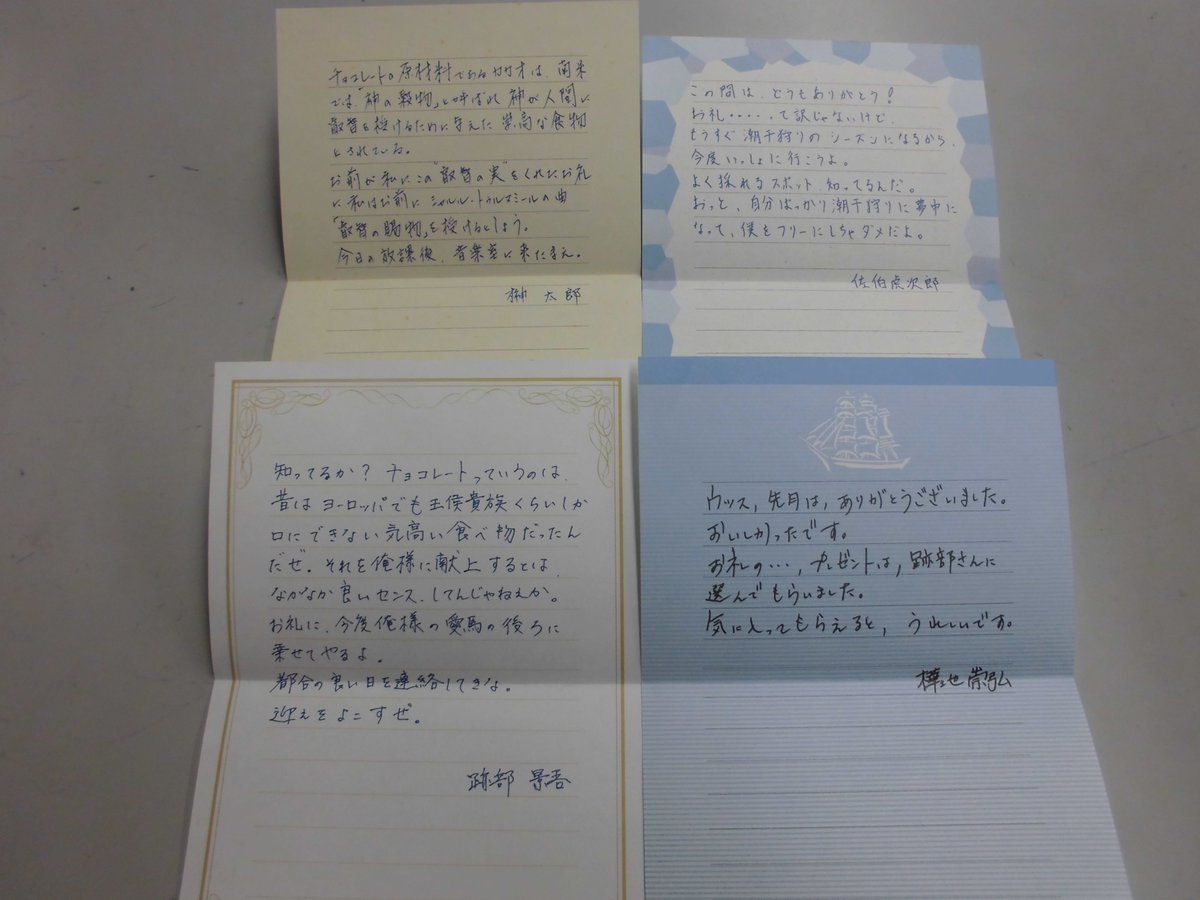 チョコレートの原材料であるカカオは、南米
では、「神の穀物」と呼ばれ神が人間に
叡智を授けるために与えた崇高な食物
とされている。
お前が私にこの"叡智の実"をくれたお礼
に私はお前にシャルル・トゥルヌミールの曲
「叡智の賜物」を授けるとしよう。
今日の放課後、音楽室に来たまえ。
榊 太郎
この間は、どうもありがとう!
お礼・・・・って訳じゃないけど、
もうすぐ潮干狩りのシーズンになるから、
今度いっしょに行こうよ。
よく採れるスポット、知ってるんだ。
おっと、自分ばっかり潮干狩りに夢中に
なって、僕をフリーにしちゃダメだよ。
佐伯虎次郎
知ってるか? チョコレートっていうのは、
昔はヨーロッパでも王侯貴族くらいしか
口にできない気高い食べ物だったん
だぜ。それを俺様に献上するとは、
なかなか良いセンス、してんじゃねえか。
お礼に、今度俺様の愛馬の後ろに
乗せてやるよ。
都合の良い日を連絡してきな。
迎えをよこすぜ。
跡部 景吾
ウッス、先月は、ありがとうございました。
おいしかったです。
お礼の…、プレゼントは、跡部さんに
選んでもらいました。
気に入ってもらえると、うれしいです。
樺地崇弘